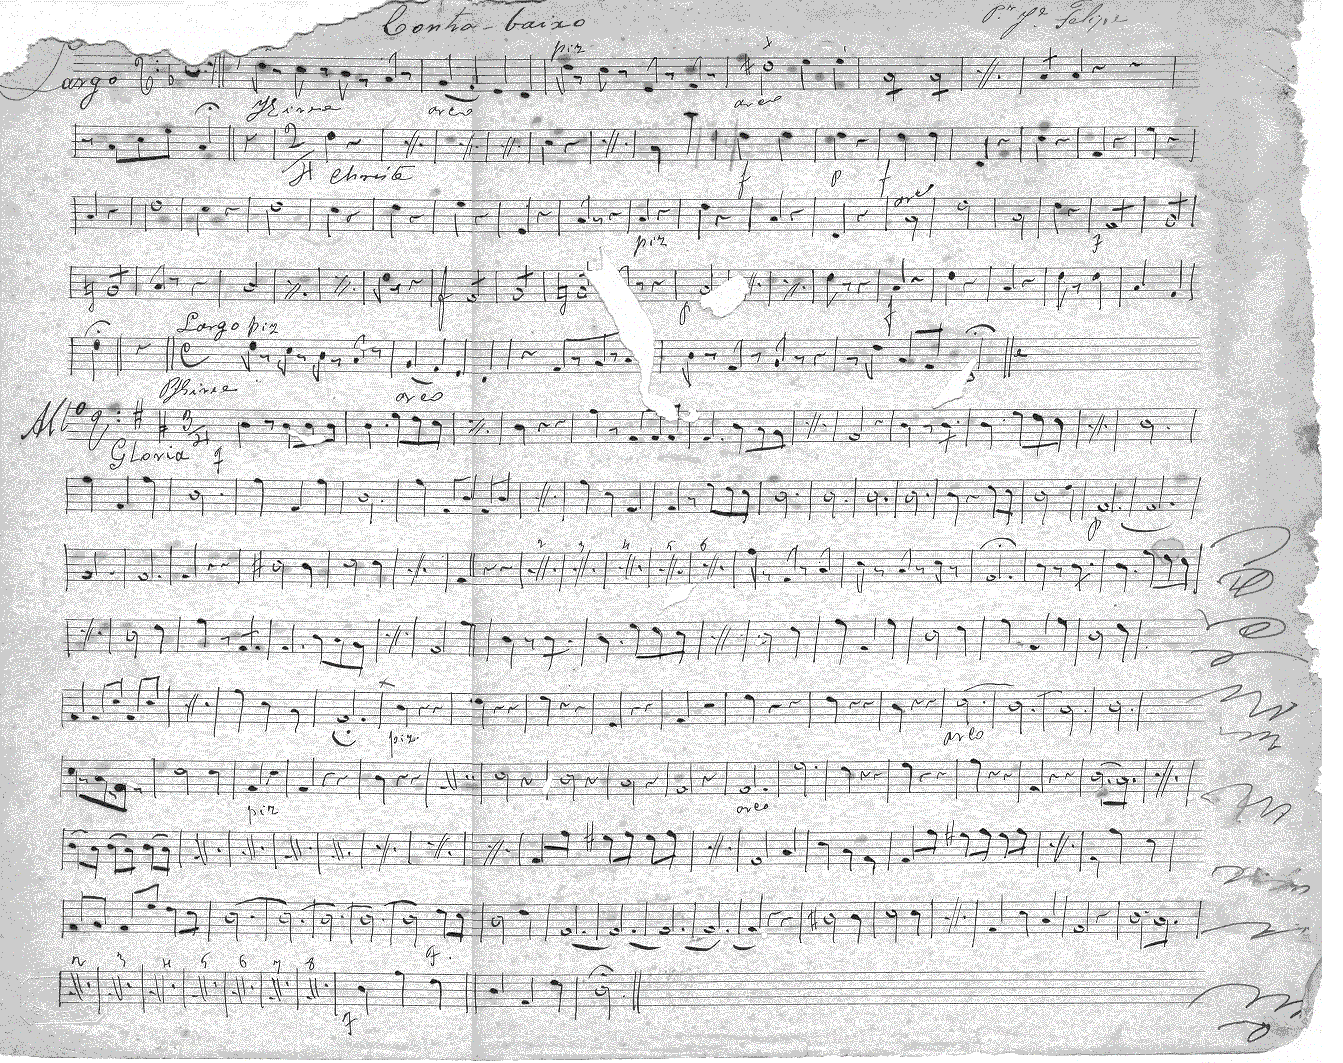 Contra-baixo
Felipe
Largo piz
Kirie arco arco
2
4 Christe
f p f arco
piz f
p f
Largo piz
Kirie arco
Allo 3
4
Gloria f
p
2 3 4 5 6
piz arco
piz arco
2 3 4 5 6 7 8 f.
f